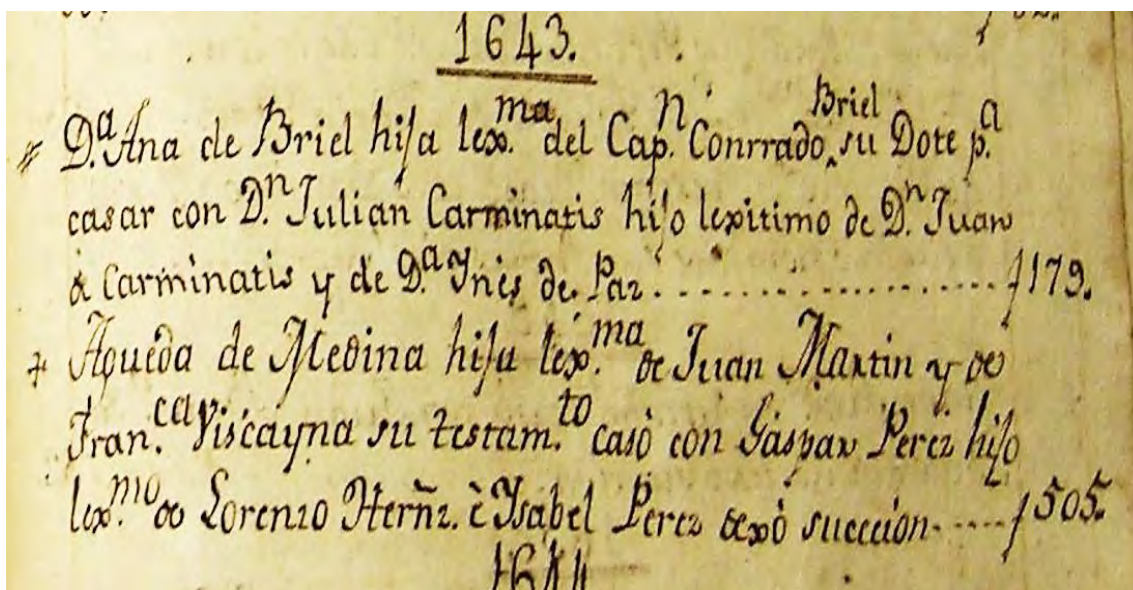 1643.
D.ª Ana de Briel hija lex.ma del Cap.n Conrrado Briel su Dote p.a
casar con D.n Julian Carminatis hijo lexitimo de D.n Juan
de Carminatis y de D.ª Ynes de Paz..................... f 179.
Agueda de Medina hija lex.ma de Juan Martin y de
Fran.ca Viscayna su testam.to casò con Gaspar Perez hijo
lex.mo de Lorenzo Herñz. è Ysabel Perez dexò succecion..... f 505.
1644